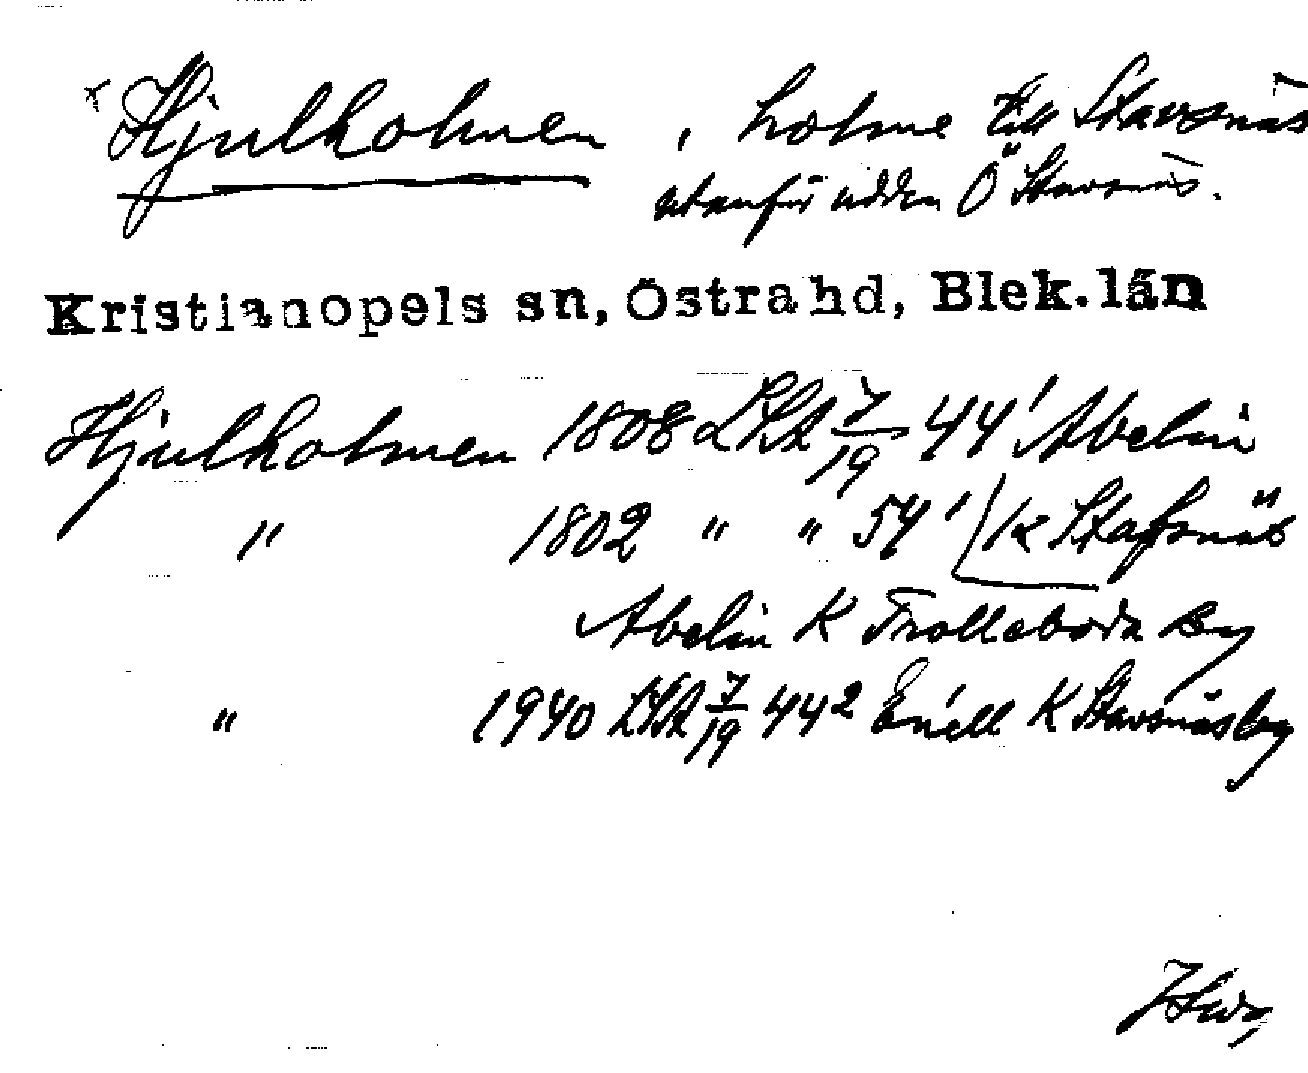 Hjulholmen, holme till Stavsnäs
utanför udden Ö Stavsnäs.
Kristianopels sn, Östra hd, Blek. län
Hjulholmen 1808 LSA 7/19 44¹ Abelin
" 1802 " " 54¹ K Stafsnäs
Abelin K Trolleboda By
" 1940 LSA 7/19 44² Enéll K Stavsnäs by